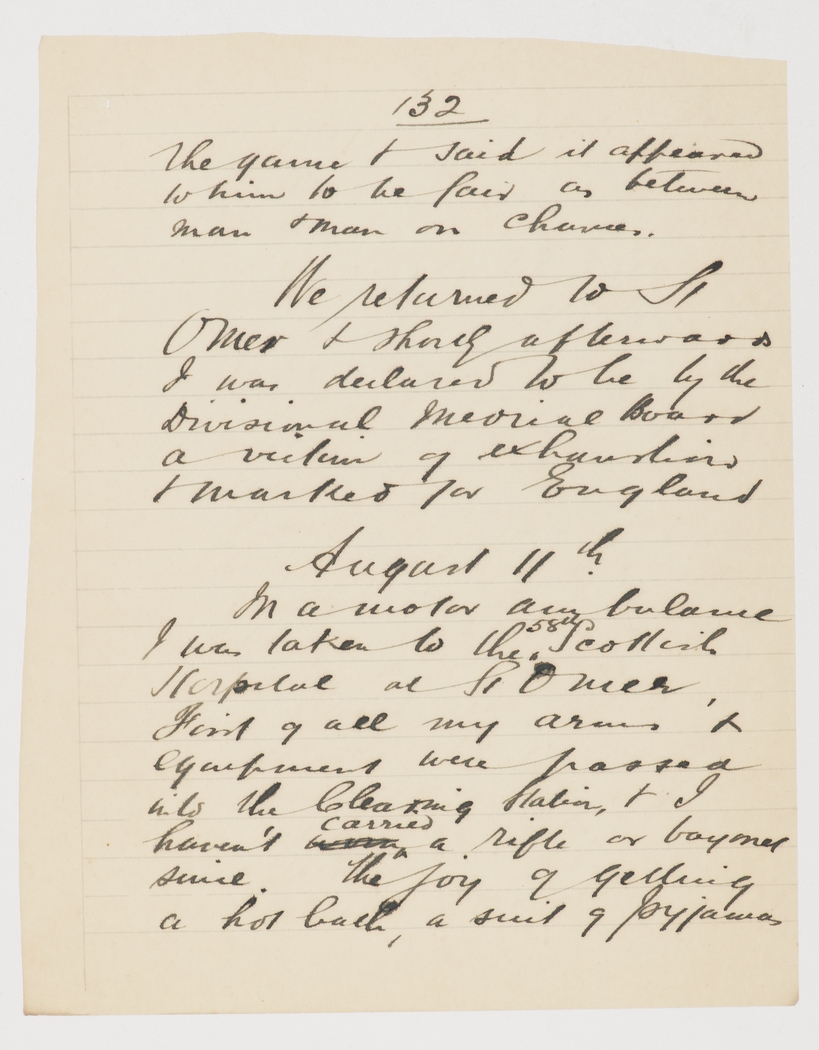 132
the game & said it appeared
to him to be fair as between
man & man on chances.
We returned to St
Omer & shortly afterwards
I was declared to be by the
Divisional Medical Board
a victim of exhaustion
& marked for England
August 11th.
In a motor ambulance
I was taken to the 58th Scottish
Hospital at St Omer,
First of all my arms &
equipment were passed
into the Clearing Station, & I
haven't worn carried a rifle or bayonet
since. The joy of getting
a hot bath, a suit of pyjamas